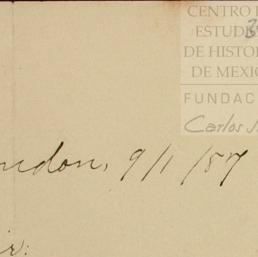 CENTRO
ESTUDI
DE HISTOR
DE MEXIC
FUNDAC
Carlos
ndon, 9/1/87
ir: